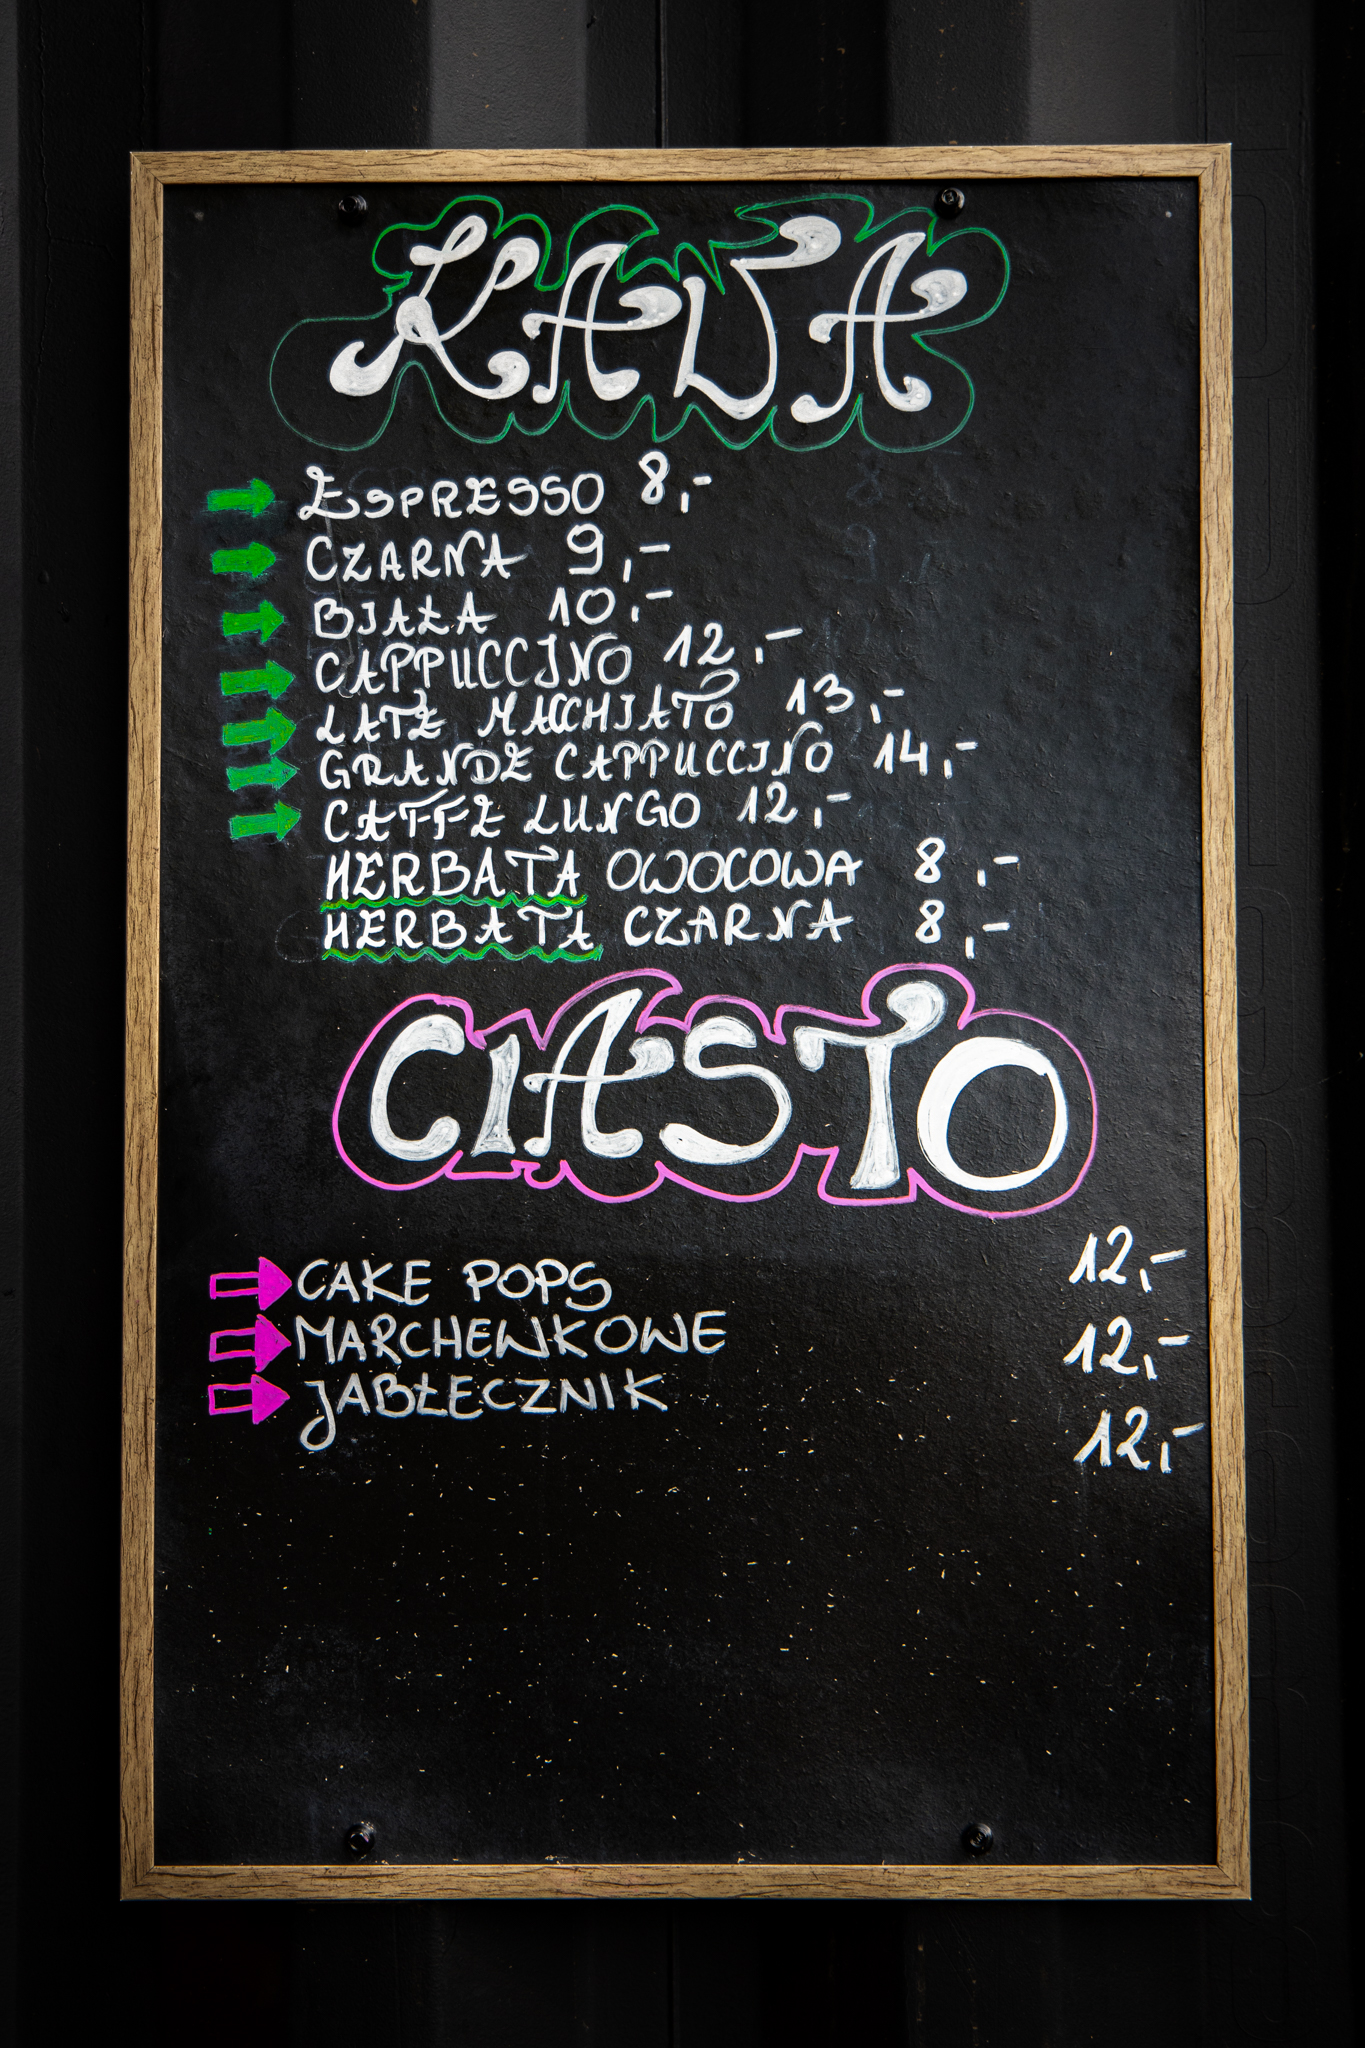 KAWA
ESPRESSO 8,-
CZARNA 9,-
BIAŁA 10,-
CAPPUCCINO 12,-
LATE MACCHIATO 13,-
GRANDE CAPPUCCINO 14,-
CAFFE LUNGO 12,-
HERBATA OWOCOWA 8,-
HERBATA CZARNA 8,-
CIASTO
CAKE POPS 12,-
MARCHEWKOWE 12,-
JABŁECZNIK 12,-